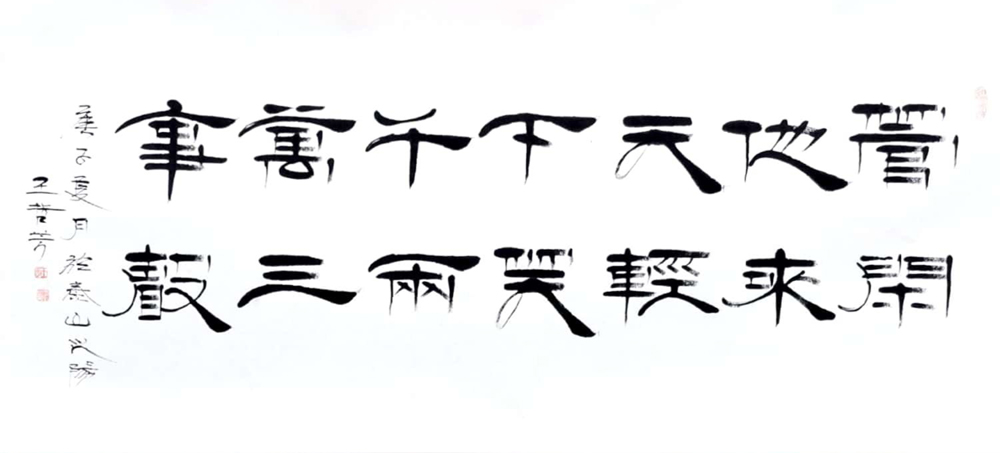 管他天下千萬事
閑來輕笑兩三聲
庚子夏月於泰山之陽